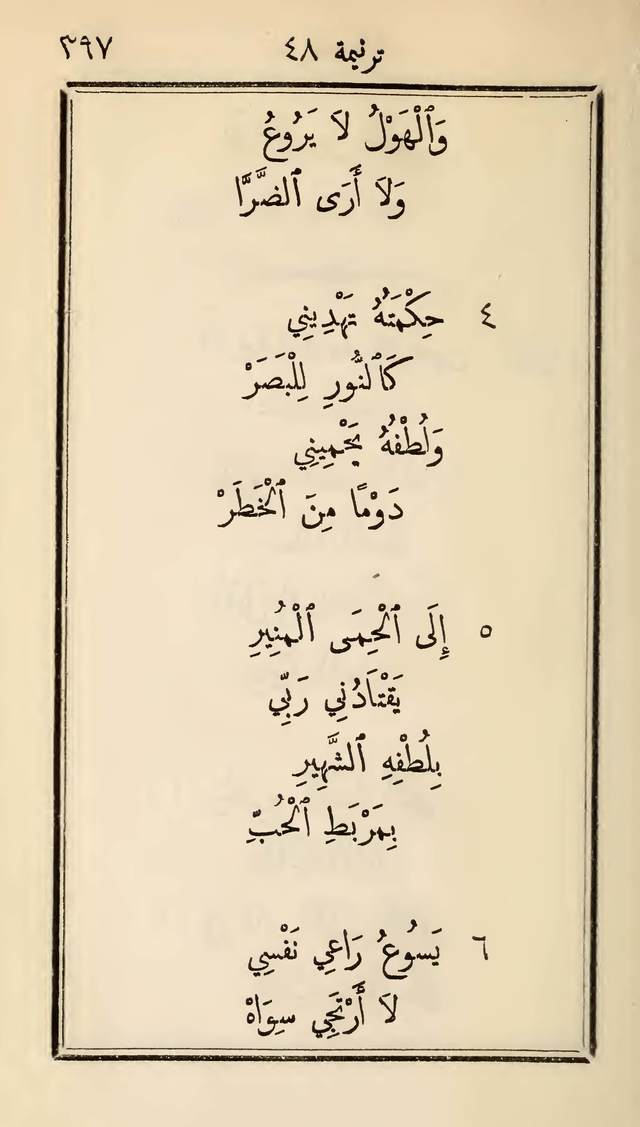 ترنيمة ٤٨ ٣٩٧
وَٱلْهَوْلُ لاَ يَرُوعُ
وَلاَ أَرَى ٱلضَّرَّا
٤ حِكْمَتَهُ تَهْدِينِي
كَٱلنُّورِ لِلْبَصَرْ
وَلُطْفُهُ يَحْمِينِي
دَوْمًا مِنَ ٱلْخَطَرْ
٥ إِلَى ٱلْحِمَى ٱلْمُنِيرِ
يَقْتَادُنِي رَبِّي
بِلُطْفِهِ ٱلشَّهِيرِ
بِمَرْبَطِ ٱلْحُبِّ
٦ يَسُوعُ رَاعِي نَفْسِي
لاَ أَرْتَجِي سِوَاهْ